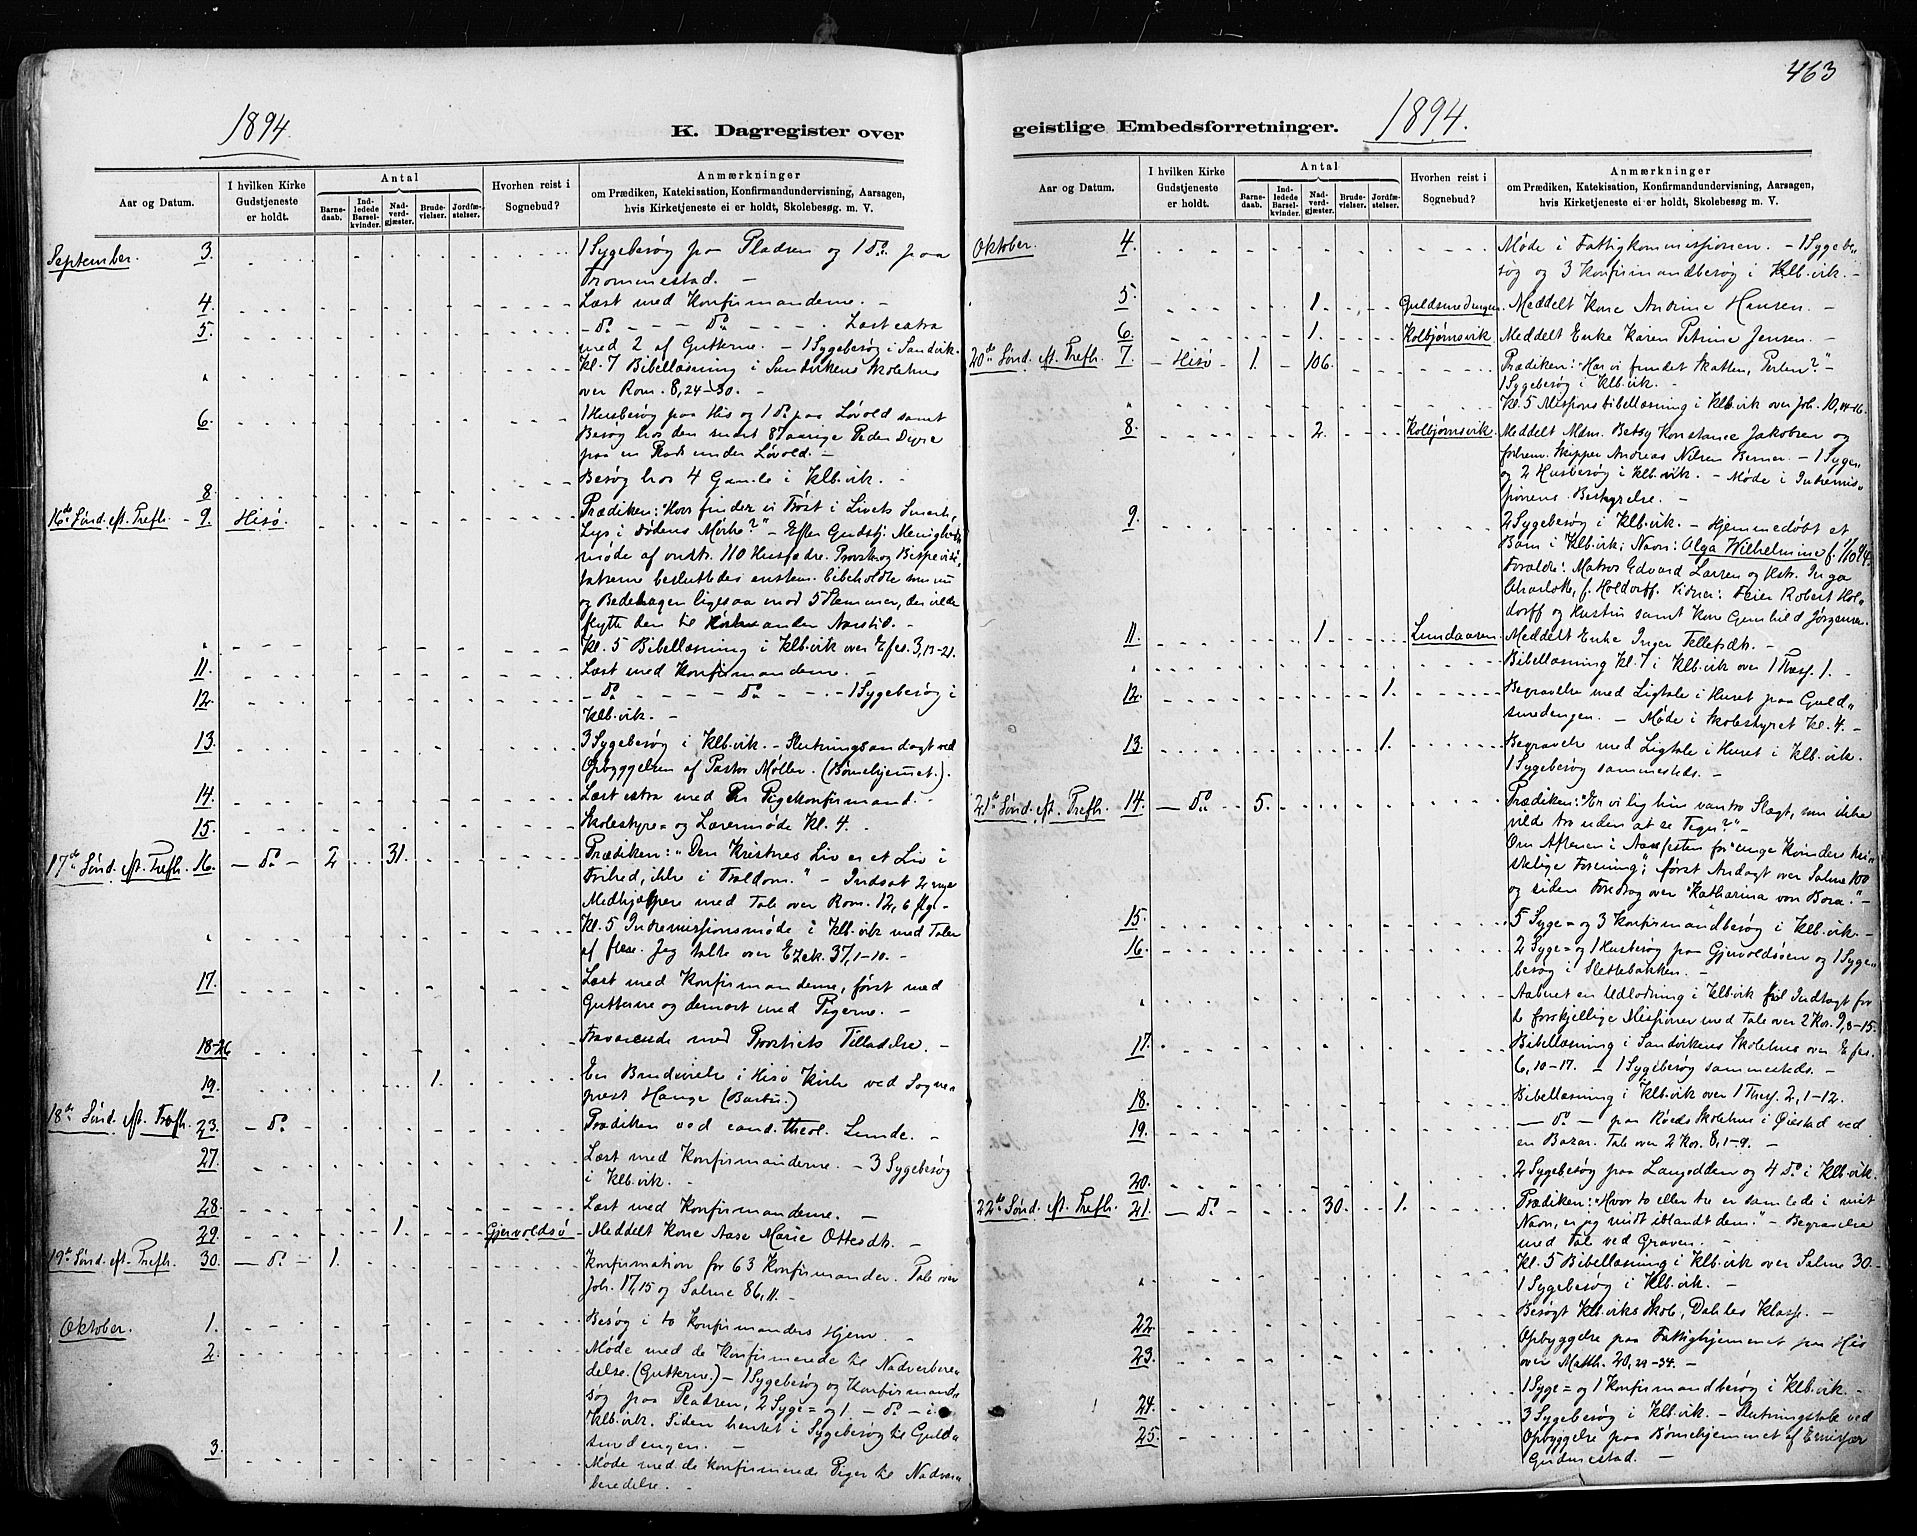 463
1894
K. Dagregister over
Aar og Datum.
I hvilken Kirke Gudstjeneste er holdt.
Antal
Barnedaab.
Indledede Barselkvinder.
Nadverdgjæster.
Brudevielser.
Jordfæstelser.
Hvorhen reist i Sognebud?
Anmærkninger
om Prædiken, Katekisation, Konfirmandundervisning, Aarsagen,
hvis Kirketjeneste ei er holdt, Skolebesøg m. V.
September 3. 1 Sygebesøg paa Pladsen og 1 do. paa
Trommestad. –
4. Læst med Konfirmanderne. –
5. – do – – – do – – – . Læst extra
med 2 af Gutterne. – 1 Sygebesøg i Sandvik.
" Kl. 7 Bibellæsning i Sandvikens Skolehus
over Rom. 8,24–30. –
6. 1 Husbesøg paa His og 1 do. paa Løvold samt
Besøg hos den snart 87 aarige Peder
paa en Plads under Løvold. –
8. Besøg hos 4 Gamle i Klb.vik. –
16de Sønd. eft. Trefh. 9. Hisø. Prædiken: "Hvor finder vi Trøst i Livets Smerte,
Lys i Dødens Mørke?" – Efter Gudstj. Menigheds
møde af omtr. 110 Husfædre. Provsk og Bispevisi-
tatserne besluttedes enstem. bibeholdte
og Bededagen ligesaa mod 5 Stemmer, der vilde
flytte den til en anden Aarstid. –
" Kl. 5 Bibellæsning i Klb.vik over Efes. 3,13–21.
11. Læst med Konfirmanderne. –
12. – do. – – – do. – . – 1 Sygebesøg i
Klb.vik. –
13. 3 Sygebesøg i Klb.vik. – Slutningsandagt ved
Opbyggelsen af Pastor Møller. (Børnehjemmet.)
14. Læst extra med Pigekonfirmand. –
15. Skolestyre= og Lærermøde Kl. 4. –
17de Sønd. eft. Trefh. 16. – do – 2 31. Prædiken: "Den Kristnes Liv er et Liv i
Frihed, ikke i Trældom." – Indsat 2 nye
Medhjælpere med Tale over Rom. 12, 6 flg. –
" Kl. 5 Indremissionsmøde i Klb.vik med Taler
af flere. Jeg talte over Ezek. 37,1–10. –
17. Læst med Konfirmanderne, først med
Gutterne og dernæst med Pigerne. –
18–26 Fraværende med Provstiets Tilladelse. –
19. 1. En Brudevielse i Hisø Kirke ved Sogne=
præst Hauge (Barbu.)
18de Sønd. eft. Trefh. 23. – do. Prædiken ved cand. theol. Lunde. –
27. Læst med Konfirmanderne. – 3 Sygebesøg
i Klb.vik. –
28. Læst med Konfirmanderne. –
29. 1. Gjervoldsø Meddelt Kone Aase Marie Ottesdtr. –
19de Sønd. eft. Trefh. 30. – do – 1. Konfirmation for 63 Konfirmander. Tale over
Joh. 17,15 og Salme 86,11. –
Oktober. 1. Besøg i to Konfirmanders Hjem. –
2. Møde med de Konfirmerede til Nadverbere-
delse. (Gutterne.) – 1 Sygebesøg og Konfirmand=
søg paa Pladsen, 2 Syge= og 1 – do – i
Klb.vik. Siden hentet i Sygebesøg til Guld=
smedengen. –
3. Møde med de konfirmerede Piger til Nadver=
beredelse. –
geistlige Embedsforretninger.
1894.
Aar og Datum.
I hvilken Kirke Gudstjeneste er holdt.
Antal
Barnedaab.
Indledede Barselkvinder.
Nadverdgjæster.
Brudevielser.
Jordfæstelser.
Hvorhen reist i Sognebud?
Anmærkninger
om Prædiken, Katekisation, Konfirmandundervisning, Aarsagen,
hvis Kirketjeneste ei er holdt, Skolebesøg m. V.
Oktober. 4. Møde i Fattigkommissionen. – 1 Sygebe=
søg og 3 Konfirmandbesøg i Klb.vik. –
5. 1. Guldsmedengen Meddelt Kone Andrine Hansen. –
6. 1. Kolbjørnsvik Meddelt Enke Karen Petrine Jensen. –
20de Sønd. eft. Trefh. 7. – Hisø 1. 106. Prædiken: "Har vi fundet Skatten, Perlen?" –
1 Sygebesøg i Klb.vik. –
" Kl. 5 Missionsbibellæsning i Klb.vik over Joh. 10,14–16.
8. 2. Kolbjørnsvik. Meddelt Mdm. Betsy Konstance Jakobsen og
forhenv. Skipper Andreas Nilsen Berner. – 1 Syge=
og 2 Husbesøg i Klb.vik. – Møde i Indremis=
sionens Bestyrelse. –
9. 2 Sygebesøg i Klb.vik. – Hjemmedøbt et
Barn i Klb.vik; Navn: Olga Wilhelmine f. 1/10 94.
Forældre: Matros Edvard Larsen og Hstr. Inga
Charlotte, f. Holdorff. Vidner: Feier Robert Hol=
dorff og Hustru samt Kone Gunhild Jørgensen
11. 1 Lundaaven Meddelt Enke Inger Tellefsdtr. –
" Bibellæsning Kl. 7 i Klb.vik over 1 Thess. 1. –
12. 1. Begravelse med Ligtale i Huset paa Guld=
smedengen. – Møde i Skolestyret Kl. 4. –
13. 1. Begravelse med Ligtale i Huset i Klb.vik.
1 Sygebesøg sammesteds. –
21de Sønd. eft. Trefh. 14. – do. 5. Prædiken: "Er vi lig hin vantro Slægt, som ikke
vilde tro uden at se Tegn?" –
Om Aftenen i Aarsfesten for "unge Kvinders kri=
stelige Forening"; først Andagt over Salme 100
og siden Foredrag over "Katharina von Bora." –
15. 5 Syge= og 3 Konfirmandbesøg i Klb.vik. –
16. 2 Syge= og 1 Husbesøg paa Gjervoldsøen og 1 Syge=
besøg i Slettebakken. –
" Aabnet en Udlodning i Klb.vik til Indtægt for
de forskjellige Missioner med Tale over 2 Kor. 9,8–15.
17. Bibellæsning i Sandvikens Skolehus over Efes.
6,10–17. – 1 Sygebesøg sammesteds. –
18. Bibellæsning i Klb.vik over 1 Thess. 2,1–12. –
19. – do. – paa Røeds Skolehus i Øiestad ved
en Bazar. Tale over 2 Kor. 8,1–9. –
20. 2 Sygebesøg paa Langodden og 4 do i Klb.vik.
22de Sønd. eft. Trefh. 21. – do. 30. 1. Prædiken: "Hvor to eller tre er samlede i mit
Navn, er jeg midt iblandt dem." – Begravelse
med Tale ved Graven. –
" Kl. 5 Bibellæsning i Klb.vik over Salme 30. –
1 Sygebesøg i Klb.vik. –
22. Besøgt Klb.viks Skole, Dahles Klasse. –
23. Opbyggelse paa Fattighjemmet paa His
over Matth. 20,29–34. –
24. 1 Syge= og 1 Konfirmandbesøg i Klb.vik. –
25. 3 Sygebesøg i Klb.vik. – Slutningstale ved
Opbyggelse paa Børnehjemmet af Emissær
Gudmestad. –